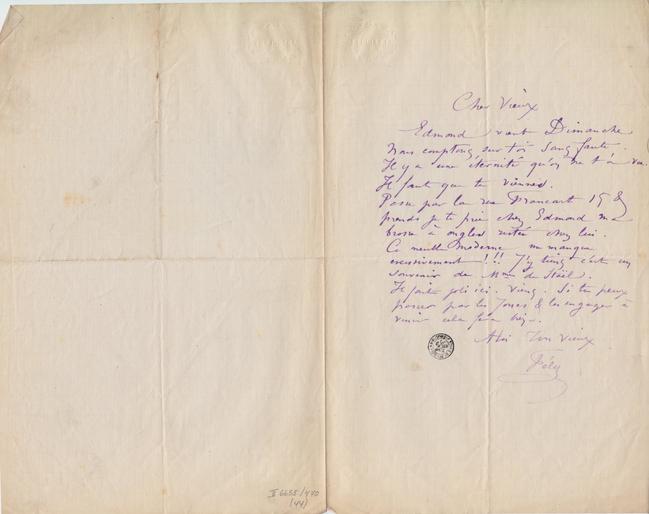 Cher Vieux
Edmond vient Dimanche
Nous comptons sur toi sans faute.
Il y a une éternité qu'on ne t'a vu.
Il faut que tu viennes.
Passe par la rue 15 &
prends je te prie chez Edmond ma
brosse à ongles restée chez lui.
Ce meuble moderne me manque
excessivement !!! J'y tiens c'est un
souvenir de Mme de Staël.
Il fait joli ici. Viens. Si tu peux
passer par les & les engager à
venir cela fera
A toi Ton vieux
Fély
II 6655/470
(44)